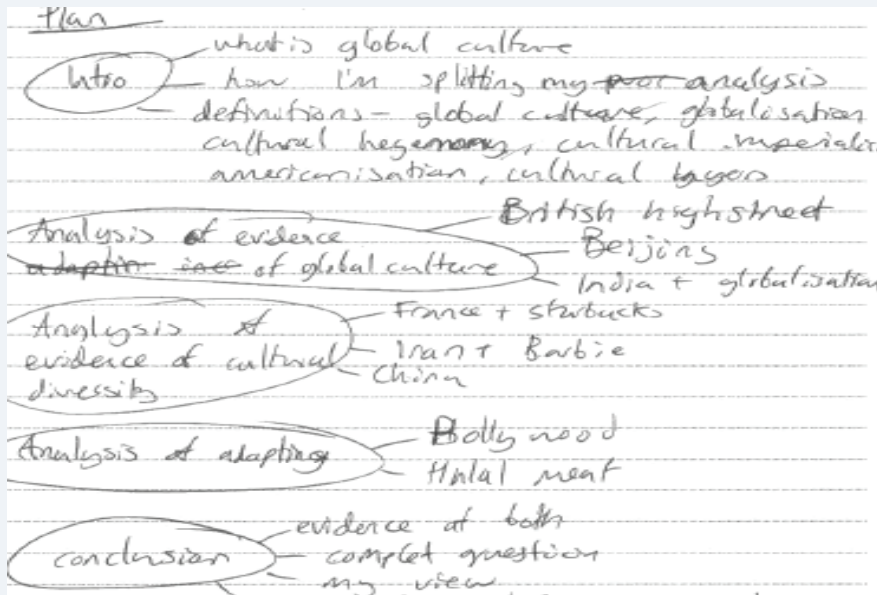 Plan
Intro
what is global culture
how I'm splitting my analysis
definitions - global culture, globalisation
cultural hegemony, cultural imperialis
americanisation, cultural layers
Analysis of evidence
of global culture
British highstreet
Beijing
India + globalisation
Analysis of
evidence of cultural
diversity
France + starbucks
Iran + Barbie
China
Analysis of adapting
Bollywood
Halal meat
conclusion
evidence of both
complet question
my view